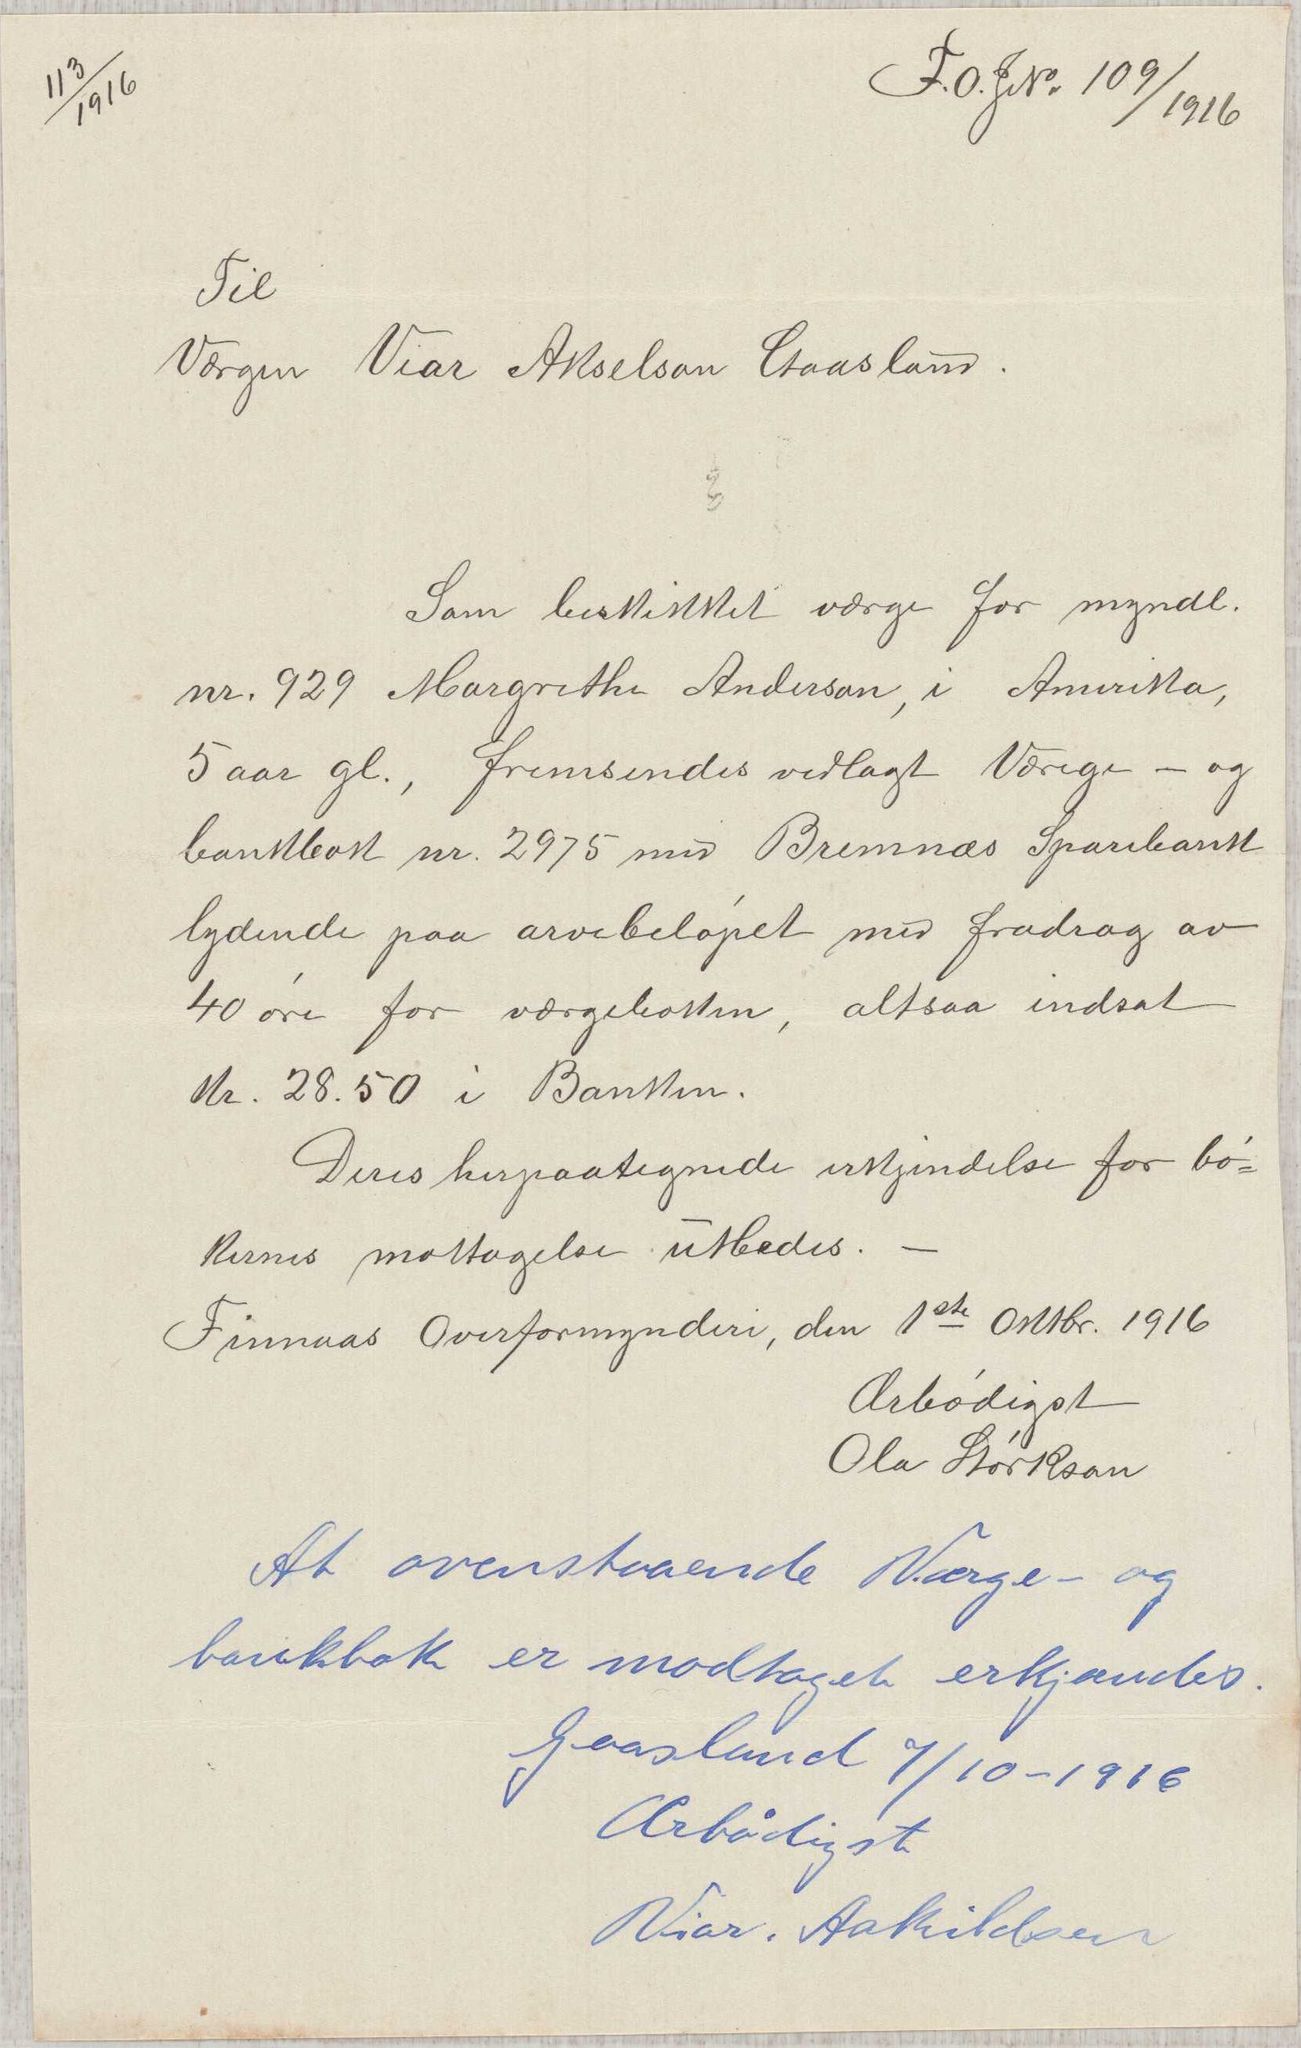 113/1916
F.O.J.No. 109/1916
Til
Værgen Viar Akselson Gaasland.
Som beskikket værge for myndl.
nr. 929 Margrethe Anderson, i Amerika,
5 aar gl., fremsendes vedlagt Værge- og
bankbok nr. 2975 med Bremnæs Sparebank
lydende paa arvebeløpet med fradrag av
40 øre for værgeboken, altsaa indsat
Kr. 28.50 i Banken.
Deres herpaategnede erkjendelse for bø-
kernes mottagelse utbedes. —
Finnaas Overformynderi, den 1ste Oktbr. 1916
Ærbødigst
Ola Størkson
At ovenstaaende Værge- og
bankbok er modtaget erkjændes.
Gaasland 7/10-1916
Ærbødigst
Viar. Askildsen